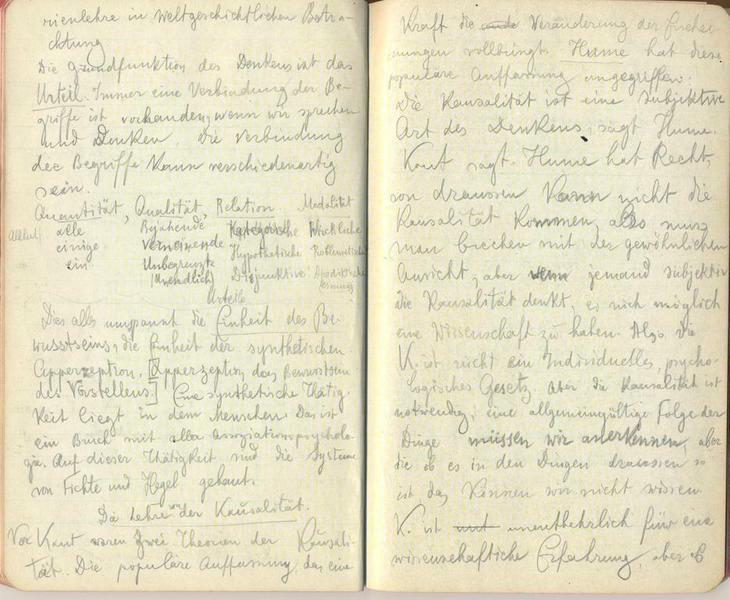 rienlehre in weltgeschichtlichen Betra-
chtung
Die Grundfunktion des Denkens ist das
Urteil. Immer eine Verbindung der Be-
griffe ist vorhanden, wenn wir sprechen
und Denken. Die Verbindung
der Begriffe kann verschiedenartig
sein.
Quantität, Qualität, Relation. Modalität
alle Bejahende Kategorische Wirkliche
einige Verneinende Hypothetische Problematische
ein Unbegrenzte Disjunktive Apodiktische
(Unendlich)
Urteile
Dies alles umspannt die Einheit des Be-
wusstseins, die Einheit der synthetischen
Apperzeption. [Apperzeption, das Bewusstsein
des Vorstellens.] Eine synthetische Thätig-
keit liegt in dem Menschen. Das ist
ein Bruch mit aller Assoziationspsycholo-
gie. Auf dieser Thätigkeit sind die Systeme
von Fichte und Hegel gebaut.
Die Lehre von der Kausalität.
Vor Kant waren zwei Theorien der Kausali-
tät. Die populäre Auffassung, das eine
Kraft die Veränderung der Erschei-
nungen vollbringt. Hume hat diese
populäre Auffassung angegriffen.
Die Kausalität ist eine subjektive
Art des Denkens, sagt Hume.
Kant sagt. Hume hat Recht,
von draussen kann nicht die
Kausalität kommen, also muss
man brechen mit der gewöhnlichen
Ansicht, aber wenn jemand subjektiv
die Kausalität denkt, es nich möglich
eine Wissenschaft zu haben. Also die
K. ist nicht ein Individuelles, psycho-
logisches Gesetz. Aber die Kausalität ist
notwendig, eine allgemeingültige Folge der
Dinge müssen wir anerkennen, aber
die ob es in den Dingen draussen so
ist das können wir nicht wissen.
K. ist unentbehrlich für eine
wissenschaftliche Erfahrung, aber ob